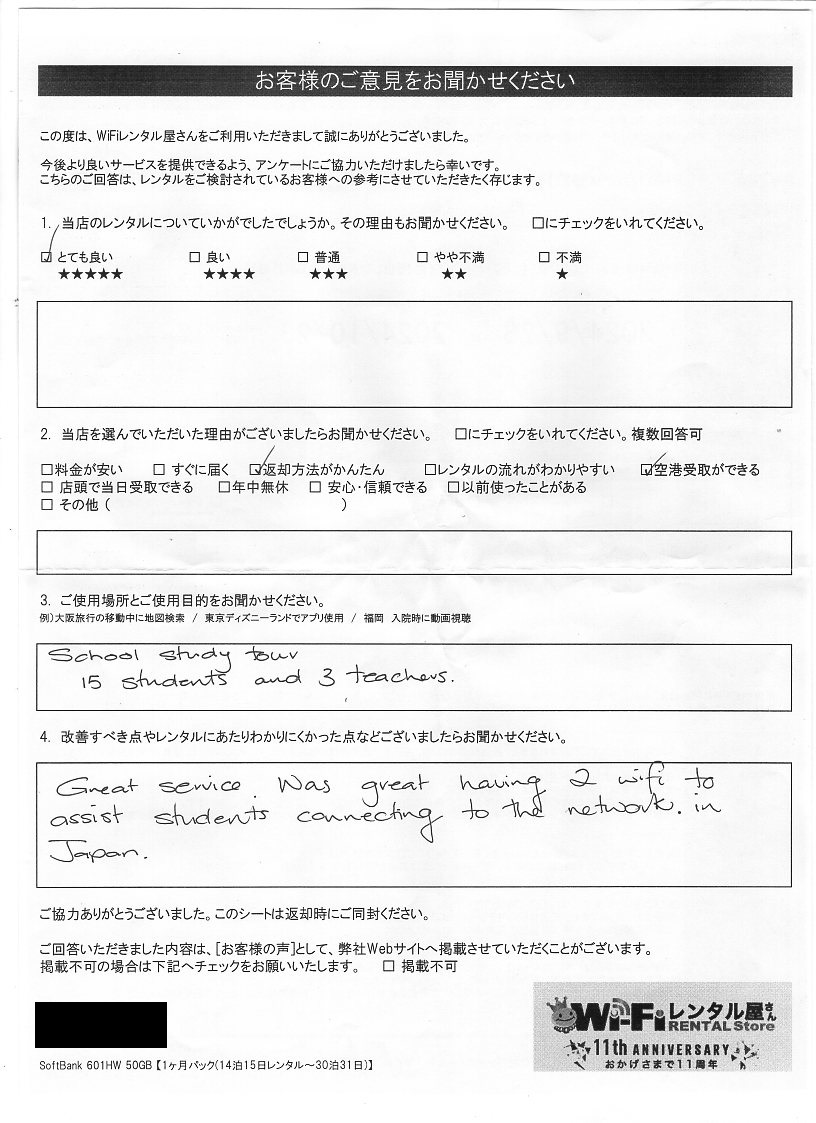 お客様のご意見をお聞かせください
この度は、WiFiレンタル屋さんをご利用いただきまして誠にありがとうございました。
今後より良いサービスを提供できるよう、アンケートにご協力いただけましたら幸いです。
こちらのご回答は、レンタルをご検討されているお客様への参考にさせていただきたく存じます。
1. 当店のレンタルについていかがでしたでしょうか。その理由もお聞かせください。 □にチェックをいれてください。
☑ とても良い □ 良い □ 普通 □ やや不満 □ 不満
★★★★★ ★★★★ ★★★ ★★ ★
2. 当店を選んでいただいた理由がございましたらお聞かせください。 □にチェックをいれてください。複数回答可
□料金が安い □ すぐに届く ☑返却方法がかんたん □レンタルの流れがわかりやすい ☑空港受取ができる
□ 店頭で当日受取できる □年中無休 □ 安心・信頼できる □以前使ったことがある
□ その他 ( )
3. ご使用場所とご使用目的をお聞かせください。
例)大阪旅行の移動中に地図検索 / 東京ディズニーランドでアプリ使用 / 福岡 入院時に動画視聴
School study tour
15 students and 3 teachers.
4. 改善すべき点やレンタルにあたりわかりにくかった点などございましたらお聞かせください。
Great service. Was great having 2 wifi to
assist students connecting to the network. in
Japan.
ご協力ありがとうございました。このシートは返却時にご同封ください。
ご回答いただきました内容は、[お客様の声]として、弊社Webサイトへ掲載させていただくことがございます。
掲載不可の場合は下記へチェックをお願いいたします。 □ 掲載不可
Wi-Fiレンタル屋さん
RENTAL Store
11th ANNIVERSARY
おかげさまで11周年
SoftBank 601HW 50GB【1ヶ月パック(14泊15日レンタル～30泊31日)】